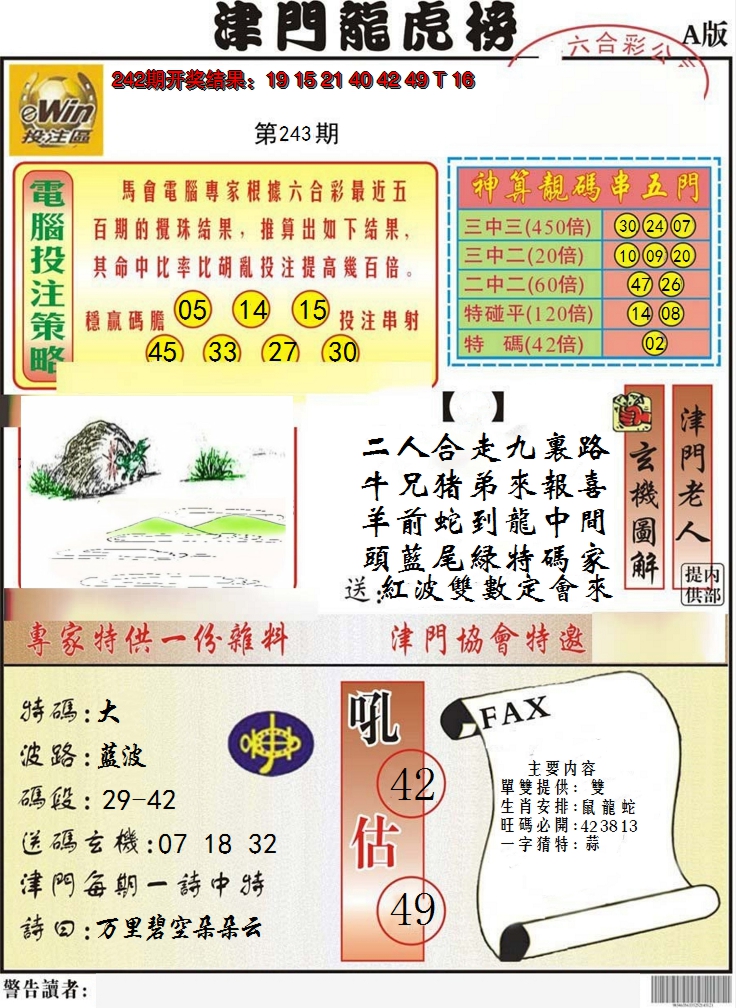 津門龍虎榜
A版
六合彩公
242期开奖结果：19 15 21 40 42 49 T 16
eWin
投注區
第243期
電腦投注策略
馬會電腦專家根據六合彩最近五
百期的攪珠结果，推算出如下结果，
其命中比率比胡亂投注提高幾百倍。
穩赢碼膽 05 14 15 投注串射
45 33 27 30
神算靚碼串五門
三中三(450倍) 30 24 07
三中二(20倍) 10 09 20
二中二(60倍) 47 26
特碰平(120倍) 14 08
特 碼(42倍) 02
【 】
二人合走九裏路
牛兄猪弟來報喜
羊前蛇到龍中間
頭藍尾緑特碼家
送:紅波雙數定會來
玄機圖解
津門老人
内部提供
專家特供一份雜料
津門協會特邀
特碼:大
波路:藍波
碼段:29-42
送碼玄機:07 18 32
津門每期一詩中特
詩曰:万里碧空朵朵云
吼
42
估
49
FAX
主要内容
單雙提供：雙
生肖安排:鼠龍蛇
旺碼必開:423813
一字猜特:蒜
警告讀者：